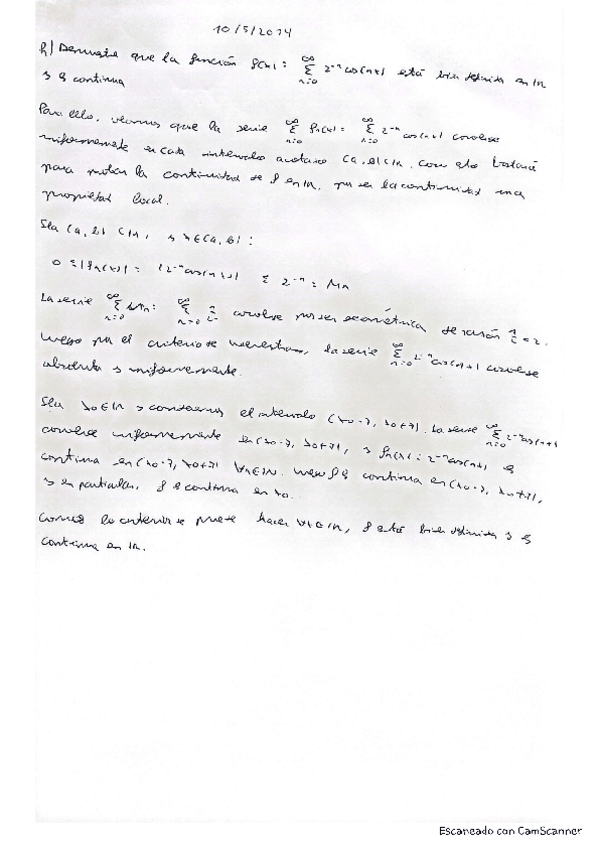 10/5/2014
h) Demuestre que la función f(x) = ∞Σn=0 2^-n cos(nx) está bien definida en IR
y es continua
Para ello, veamos que la serie ∞Σn=0 fn(x) = ∞Σn=0 2^-n cos(nx) converge
uniformemente en cada intervalo acotado [a,b] ⊂ IR, con ello bastará
para probar la continuidad de f en IR, por ser la continuidad una
propiedad local.
Sea [a,b] ⊂ IR, y x ∈ [a,b]:
0 ≤ |fn(x)| = |2^-n cos(nx)| ≤ 2^-n = Mn
La serie ∞Σn=0 Mn = ∞Σn=0 converge por ser geométrica de razón
luego por el criterio de Weierstrass, la serie ∞Σn=0 2^-n cos(nx) converge
absoluta y uniformemente.
Sea x0 ∈ IR y consideremos el intervalo [x0-1, x0+1]. La serie ∞Σn=0 2^-n cos(nx)
converge uniformemente en [x0-1, x0+1], y fn(x) = 2^-n cos(nx) es
continua en [x0-1, x0+1] ∀n∈IN. Luego f es continua en [x0-1, x0+1],
y en particular, f es continua en x0.
Como lo anterior se puede hacer ∀x∈IR, f está bien definida y es
continua en IR.
Escaneado con CamScanner